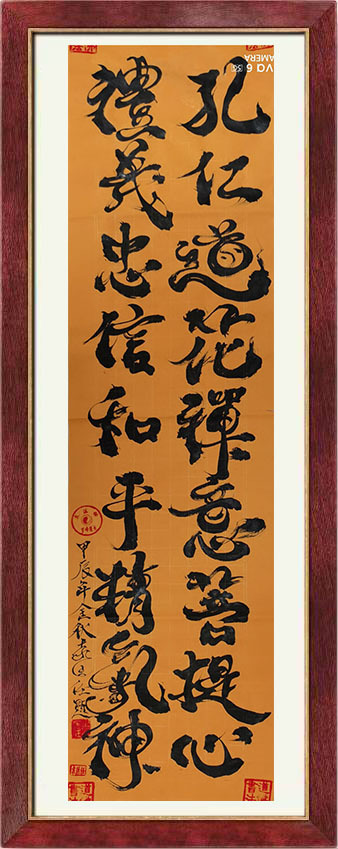 孔仁道花禪意菩提心
禮義忠信和平精氣神
甲辰年金秋
AMERA